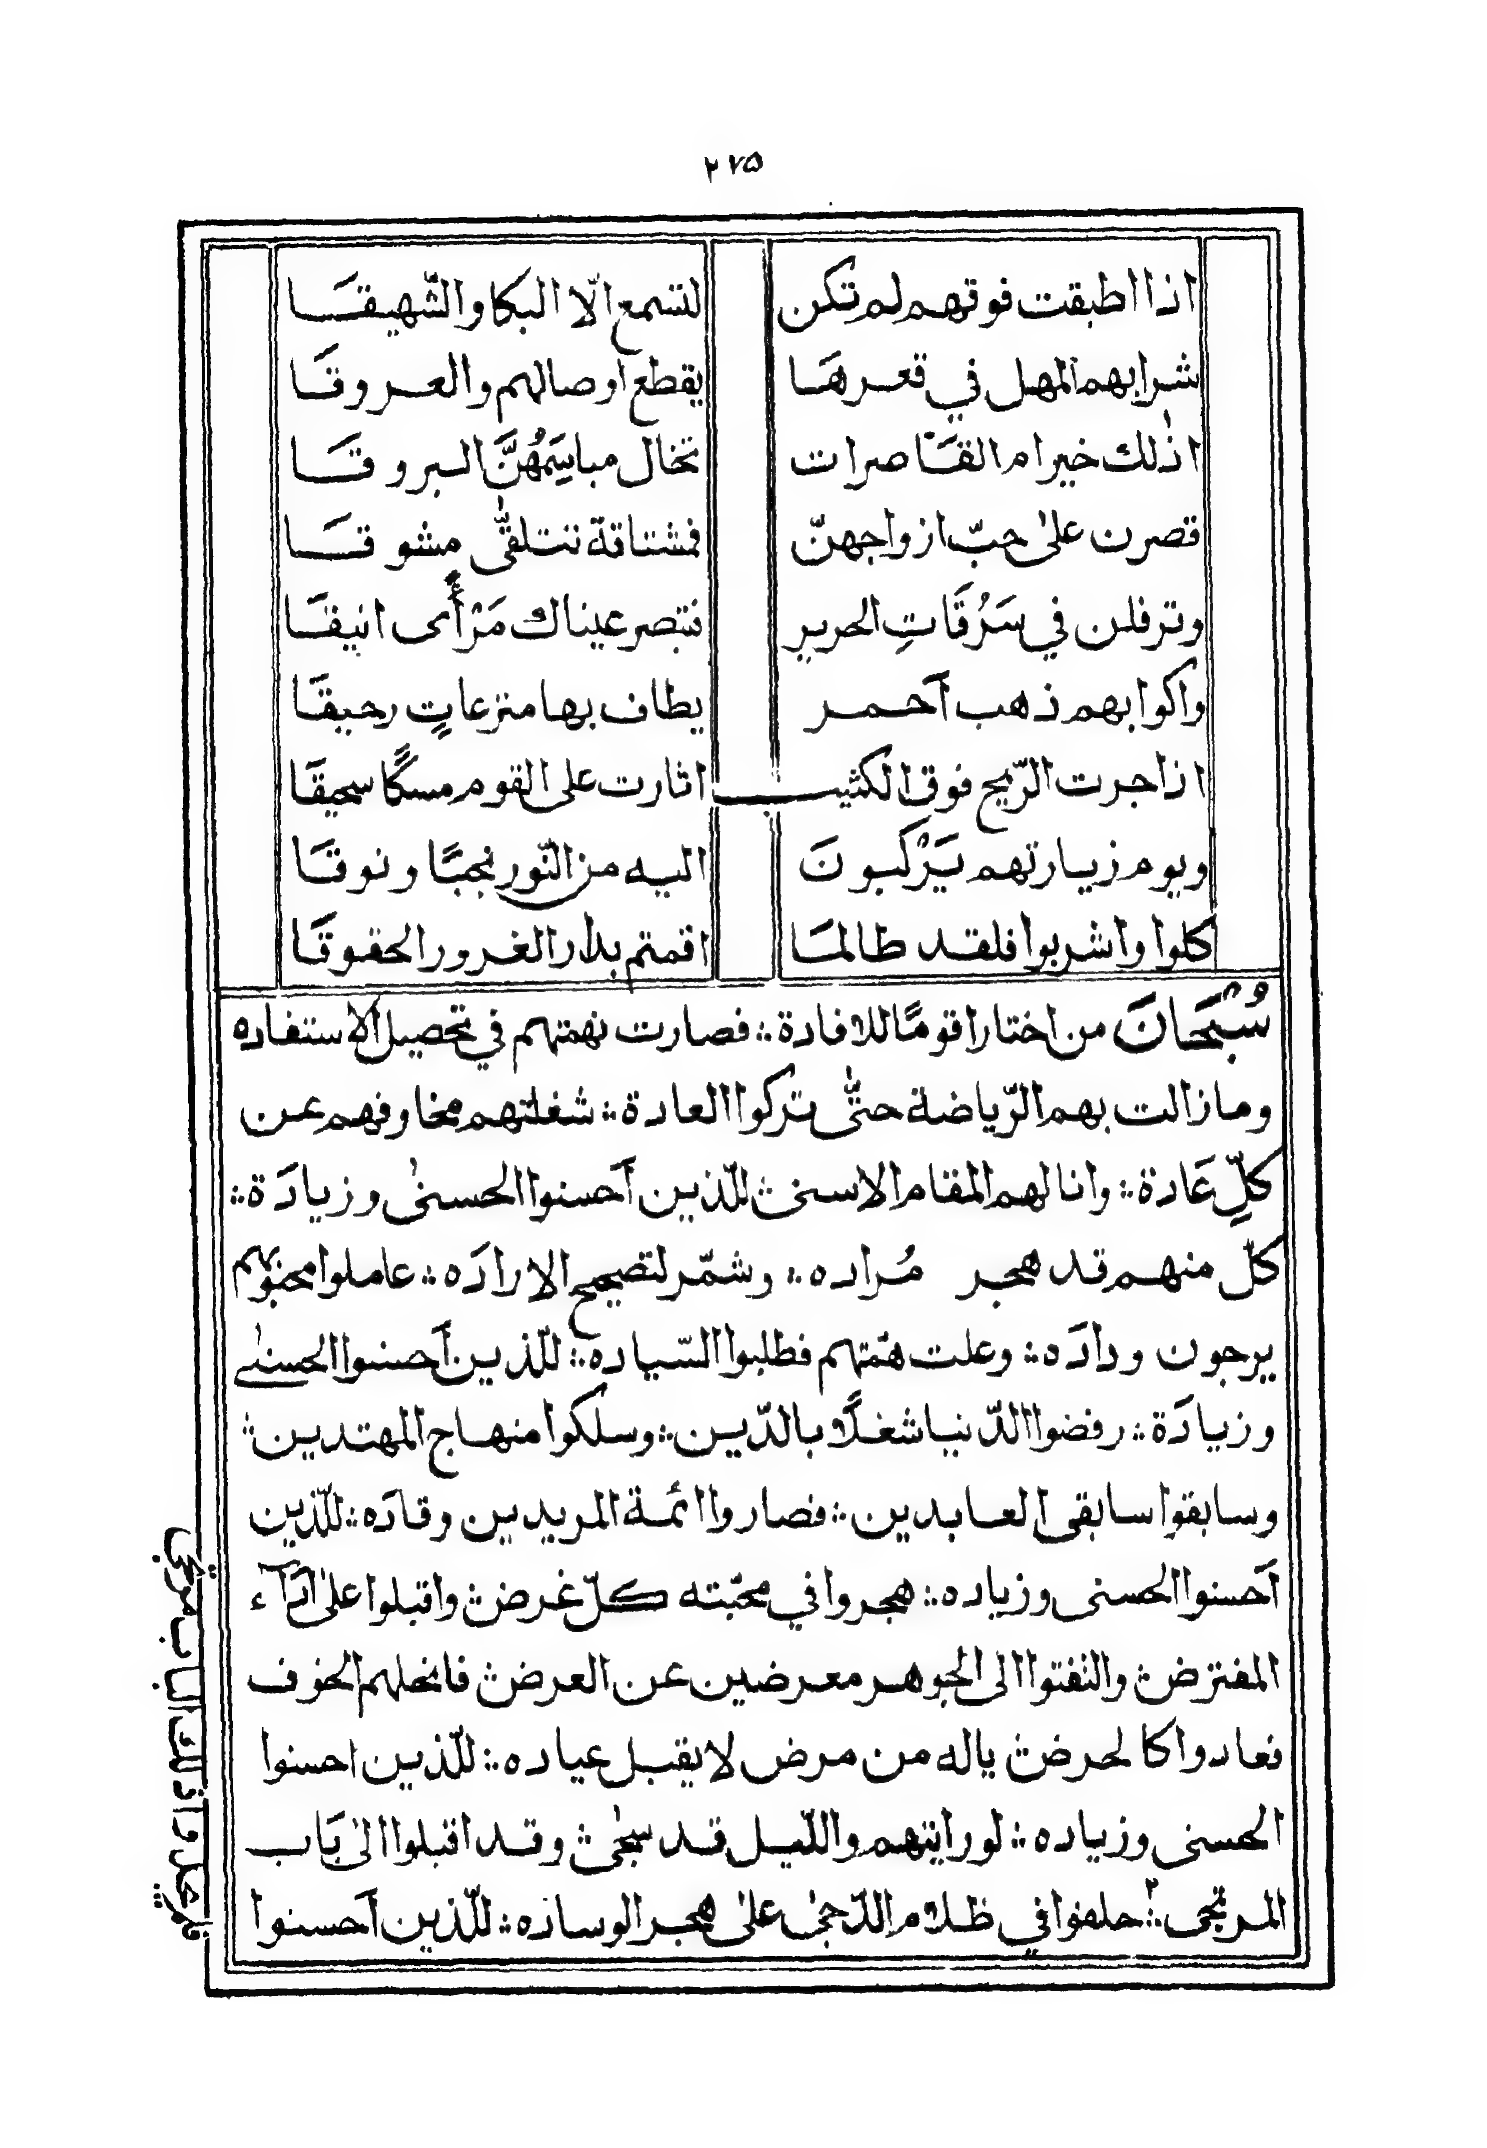 ٢٧٥
اذا اطبقت فوقهم لم تكن لتسمع الّا البكا والشّهيقَا
شرابهم المهل في قعرهَا يقطع اوصالهم والعروقَا
اذٰلك خير ام القَاصرات تخال مباسِمَهُنَّ البروقَا
قصرن علىٰ حبّ ازواجهنّ فمشتاقة تتلقّى مشوقَا
وترفلن في سَرُقَاتِ الحرير فتبصر عيناك مَرْأًى انيقَا
واكوابهم ذهب أحمر يطاف بها منزعاتٍ رحيقَا
اذا جرت الرّيح فوق الكثيب اثارت على القوم مسكًا سحيقَا
ويوم زيارتهم يَرْكبونَ اليه من النّور نجبًا ونوقَا
كلوا واشربوا فلقد طالمَا اقمتم بدار الغرور الحقوقَا
سُبْحَانَ من اختار اقومًا للافادة ؞ فصارت نهمتهم في تحصيل الاستفاده
وما زالت بهم الرّياضة حتّٰى تركوا العادة ؞ شغلتهم مخاوفهم عن
كلّ عَادة ؞ وانالهم المقام الاسنى ؞ للّذين أحسنوا الحسنىٰ وزيادَة ؞
كلّ منهم قد هجر مُراده ؞ وشمّر لتصحيح الارادَه ؞ عاملوا محبوبهم
يرجون ودادَه ؞ وعلت همّتهم فطلبوا السّياده ؞ للّذين أحسنوا الحسنىٰ
وزيادَة ؞ رفضوا الدّنيا شغلًا بالدّين ؞ وسلكوا منهاج المهتدين ؞
وسابقوا سابقى العابدين ؞ فصاروا ائمة المريدين وقادَه ؞ للّذين
أحسنوا الحسنى وزياده ؞ هجروا في محبّته كلّ غرض ؞ واقبلوا علىٰ ادَآء
المفترض ؞ والتفتوا الى الجوهر معرضين عن العرض ؞ فانحلهم الخوف
فعادوا كالحرض ؞ ياله من مرض لا يقبل عياده ؞ للّذين احسنوا
الحسنى وزياده ؞ لو رايتهم واللّيل قد سجىٰ ؞ وقد اقبلوا الىٰ بَاب
المرتجى ؞ حلفوا في ظلام الدّجىٰ علىٰ هجر الوسادَه ؞ للّذين أحسنوا
فلم يجد واذلك الباب مرتجى